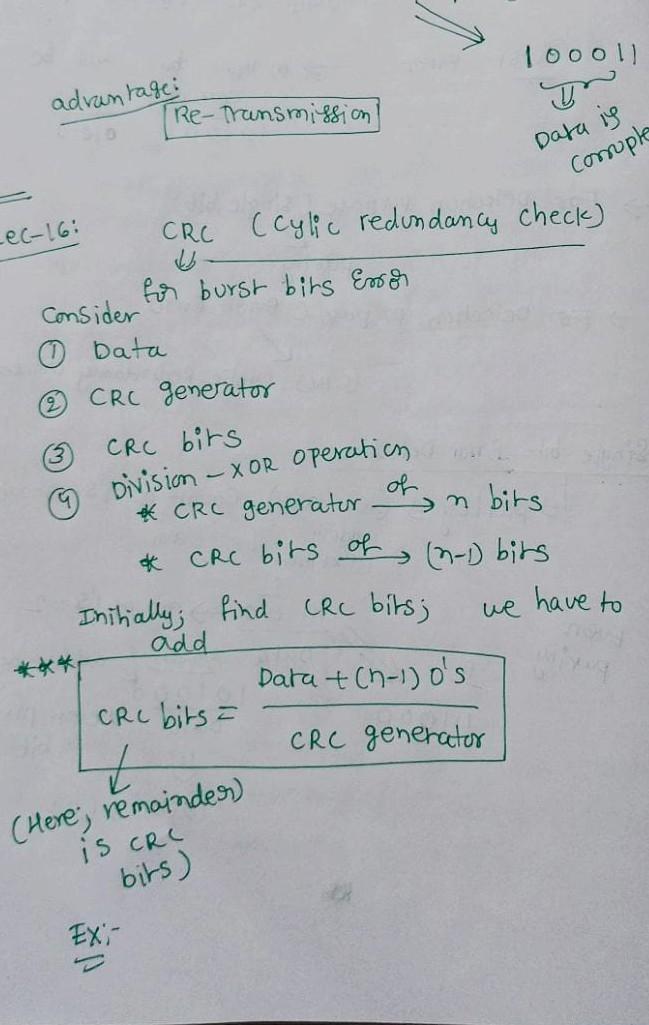 100011
advantage:
Re-Transmission
Data is
corrupte
ec-16:
CRC (cylic redundancy check)
for burst bits Error
Consider
① Data
② CRC generator
③ CRC bits
④ Division - XOR operation
* CRC generator of → n bits
* CRC bits of → (n-1) bits
Initially; find CRC bits; we have to
add
*** CRC bits = Data + (n-1) 0's
CRC generator
(Here; remainder)
is CRC
bits)
Ex:-